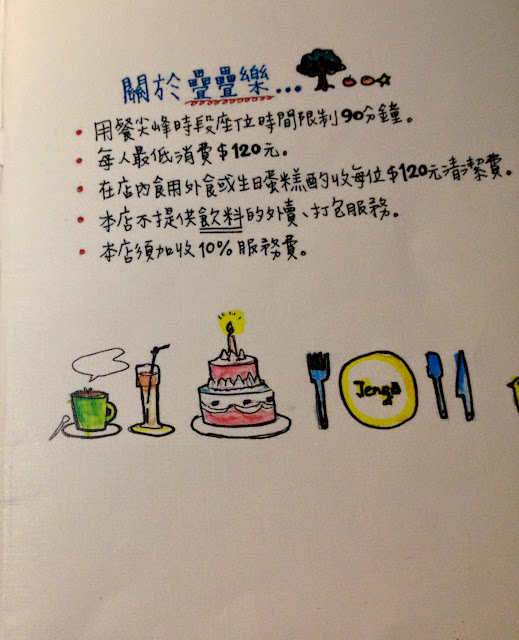 關於疊疊樂...
• 用餐尖峰時段座位時間限制90分鐘。
• 每人最低消費$120元。
• 在店內食用外食或生日蛋糕酌收每位$120元清潔費。
• 本店不提供飲料的外賣、打包服務。
• 本店須加收10%服務費。
Jenga